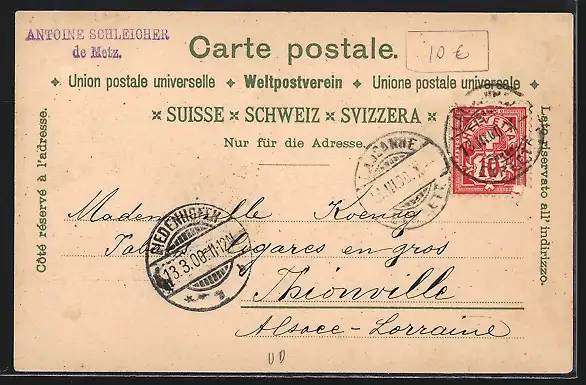 ANTOINE SCHLEICHER
de Metz.
Carte postale.
10 €
Union postale universelle Weltpostverein Unione postale universale
SUISSE SCHWEIZ SVIZZERA
Nur für die Adresse.
Côté réservé à l'adresse.
Lato riservato all' indirizzo.
HELVETIA
10
LAUSANNE
DIEDENHOFEN
13.3.00.11-12V.
Mademoiselle Koenig
Cigares en gros
Thionville
Alsace-Lorraine
UD